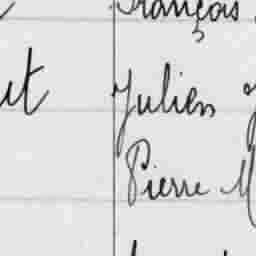 François
ut Julien
Pierre M